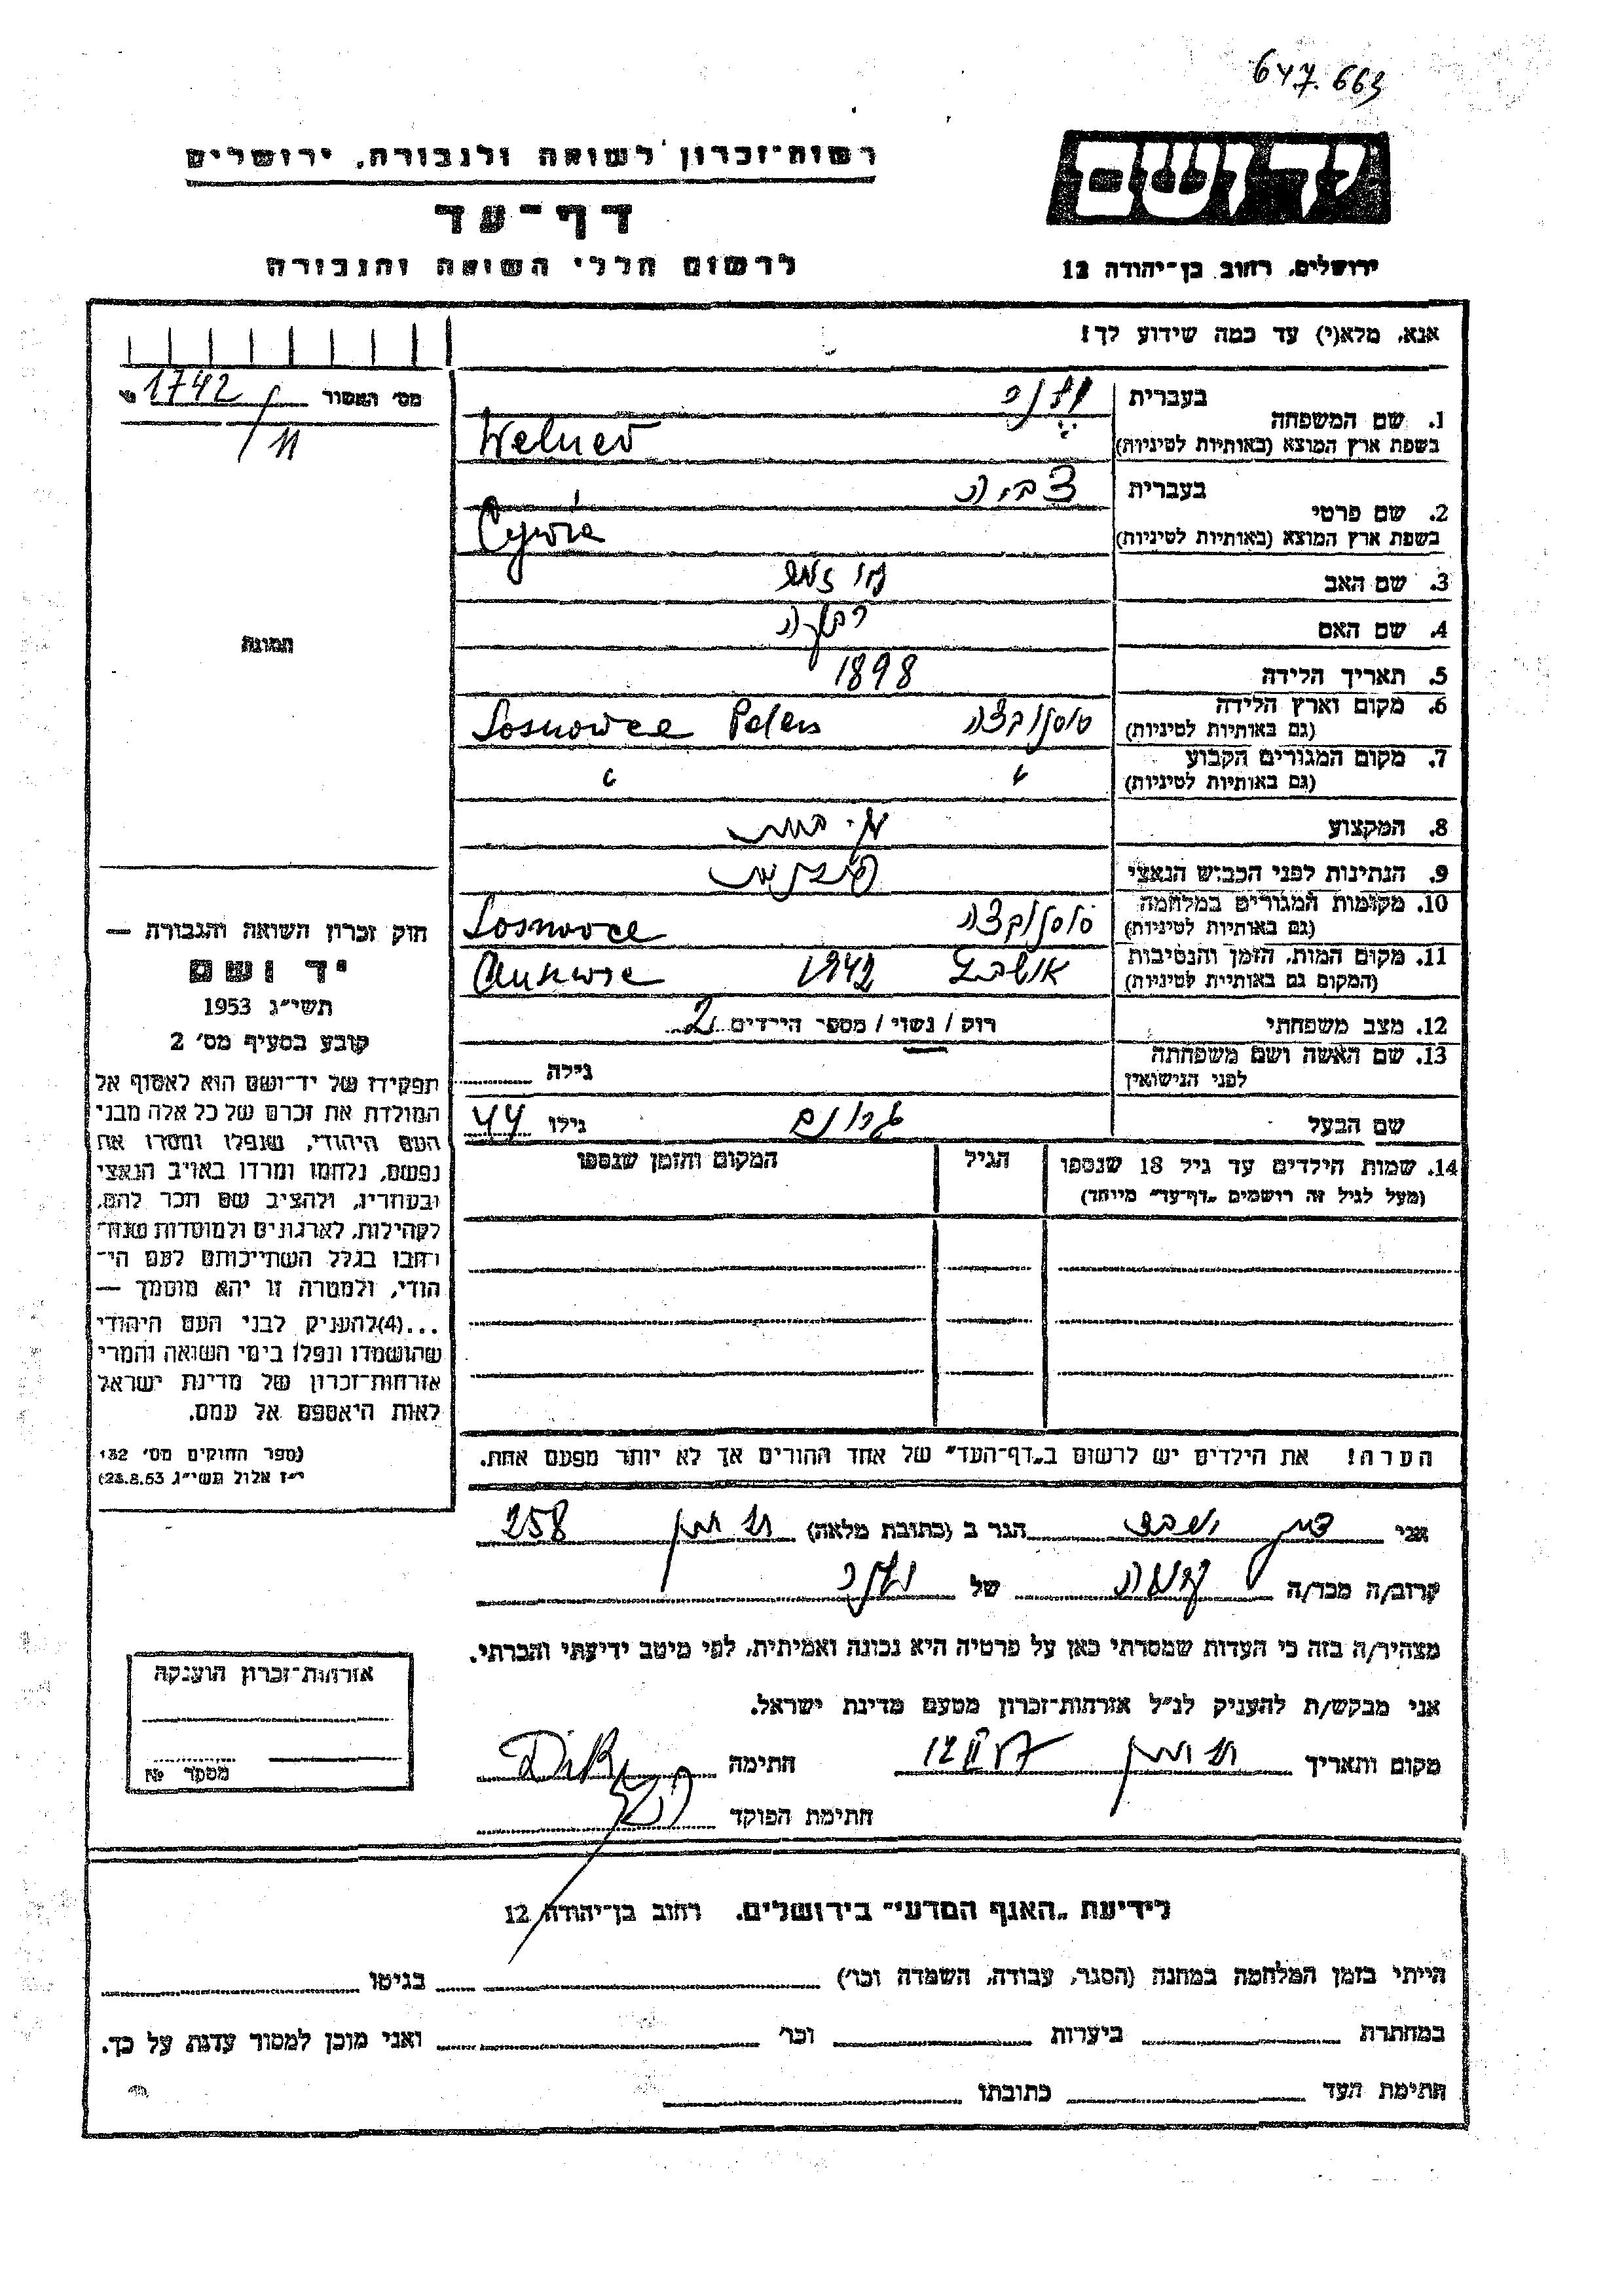 647.663
רשות־זכרון לשואה ולגבורה, ירושלים
יד ושם
דף־עד
לרשום חללי השואה והגבורה
ירושלים, רחוב בן־יהודה 12
אנא, מלא(י) עד כמה שידוע לך!
מס׳ האסור 1742
1. שם המשפחה בעברית
בשפת ארץ המוצא (באותיות לטיניות) Welner
2. שם פרטי בעברית צביה
בשפת ארץ המוצא (באותיות לטיניות) Cywia
3. שם האב
4. שם האם רבקה
5. תאריך הלידה 1898
6. מקום וארץ הלידה (גם באותיות לטיניות) סוסנוביצה Sosnowce Polen
7. מקום המגורים הקבוע (גם באותיות לטיניות) " "
8. המקצוע
9. הנתינות לפני הכבוש הנאצי
10. מקומות המגורים במלחמה (גם באותיות לטיניות) סוסנוביצה Sosnowce
11. מקום המות, הזמן והנסיבות (המקום גם באותיות לטיניות) 1942
12. מצב משפחתי רוק / נשוי / מספר הירדים 2
13. שם האשה ושם משפחתה לפני הנישואין גילה
שם הבעל גילו 44
14. שמות הילדים עד גיל 18 שנספו
(מעל לגיל זה רושמים „דף־עד״ מיוחד)
הגיל
המקום והזמן שנספו
הערה! את הילדים יש לרשום ב„דף־העד״ של אחד ההורים אך לא יותר מפעם אחת.
תמונה
חוק זכרון השואה והגבורה —
יד ושם
תשי״ג 1953
קובע בסעיף מס׳ 2
תפקידו של יד־ושם הוא לאסוף אל
המולדת את זכרם של כל אלה מבני
העם היהודי, שנפלו ומסרו את
נפשם, נלחמו ומרדו באויב הנאצי
ובעוזריו, ולהציב שם וזכר להם,
לקהילות, לארגונים ולמוסדות שנח־
רבו בגלל השתייכותם לעם הי־
הודי, ולמטרה זו יהא מוסמך —
...(4)להעניק לבני העם היהודי
שהושמדו ונפלו בימי השואה והמרי
אזרחות־זכרון של מדינת ישראל
לאות היאספם אל עמם.
(ספר החוקים מס׳ 132
י״ז אלול תשי״ג 28.8.53)
אני הגר ב (כתובת מלאה) 258
קרוב/ה מכר/ה של
מצהיר/ה בזה כי העדות שמסרתי כאן על פרטיה היא נכונה ואמיתית, לפי מיטב ידיעתי והכרתי.
אני מבקש/ת להעניק לנ״ל אזרחות־זכרון מטעם מדינת ישראל.
מקום ותאריך חתימה
חתימת הפוקד
אזרחות־זכרון הוענקה
מספר №
לידיעת „האגף המדעי״ בירושלים, רחוב בן־יהודה 12
הייתי בזמן המלחמה במחנה (הסגר, עבודה, השמדה וכו׳) בגיטו
במחתרת ביערות וכו׳ ואני מוכן למסור עדות על כך.
חתימת העד כתובתו